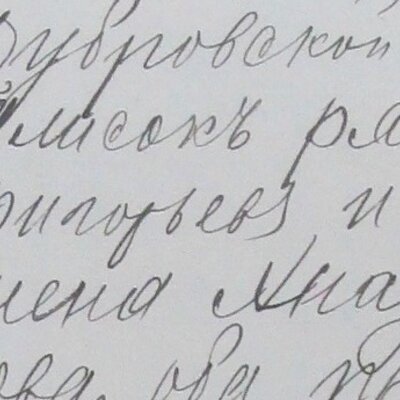 Дубровской
Список ря
ригорьевъ и
мена Ана
ова, оба пр